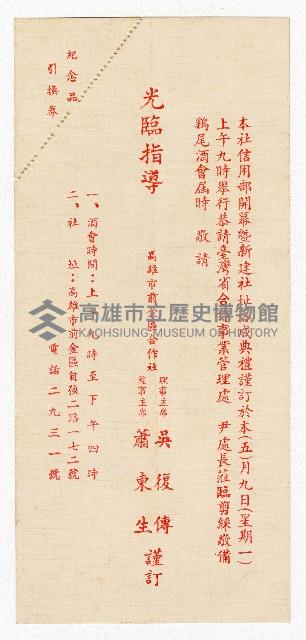 本社信用部開幕暨新建社址落成典禮謹訂於本(五)月九日(星期一)
上午九時舉行恭請臺灣省合作事業管理處 尹處長蒞臨剪綵敬備
鷄尾酒會屆時 敬請
光臨指導
高雄市前金區合作社
理事主席 吳復傳
監事主席 蕭東生 謹訂
一、酒會時間：上午九時至下午四時
二、社 址：高雄市前金區自強二路一七二號
電話二九三一號
紀念品
引換券
高雄市立歷史博物館
KAOHSIUNG MUSEUM OF HISTORY